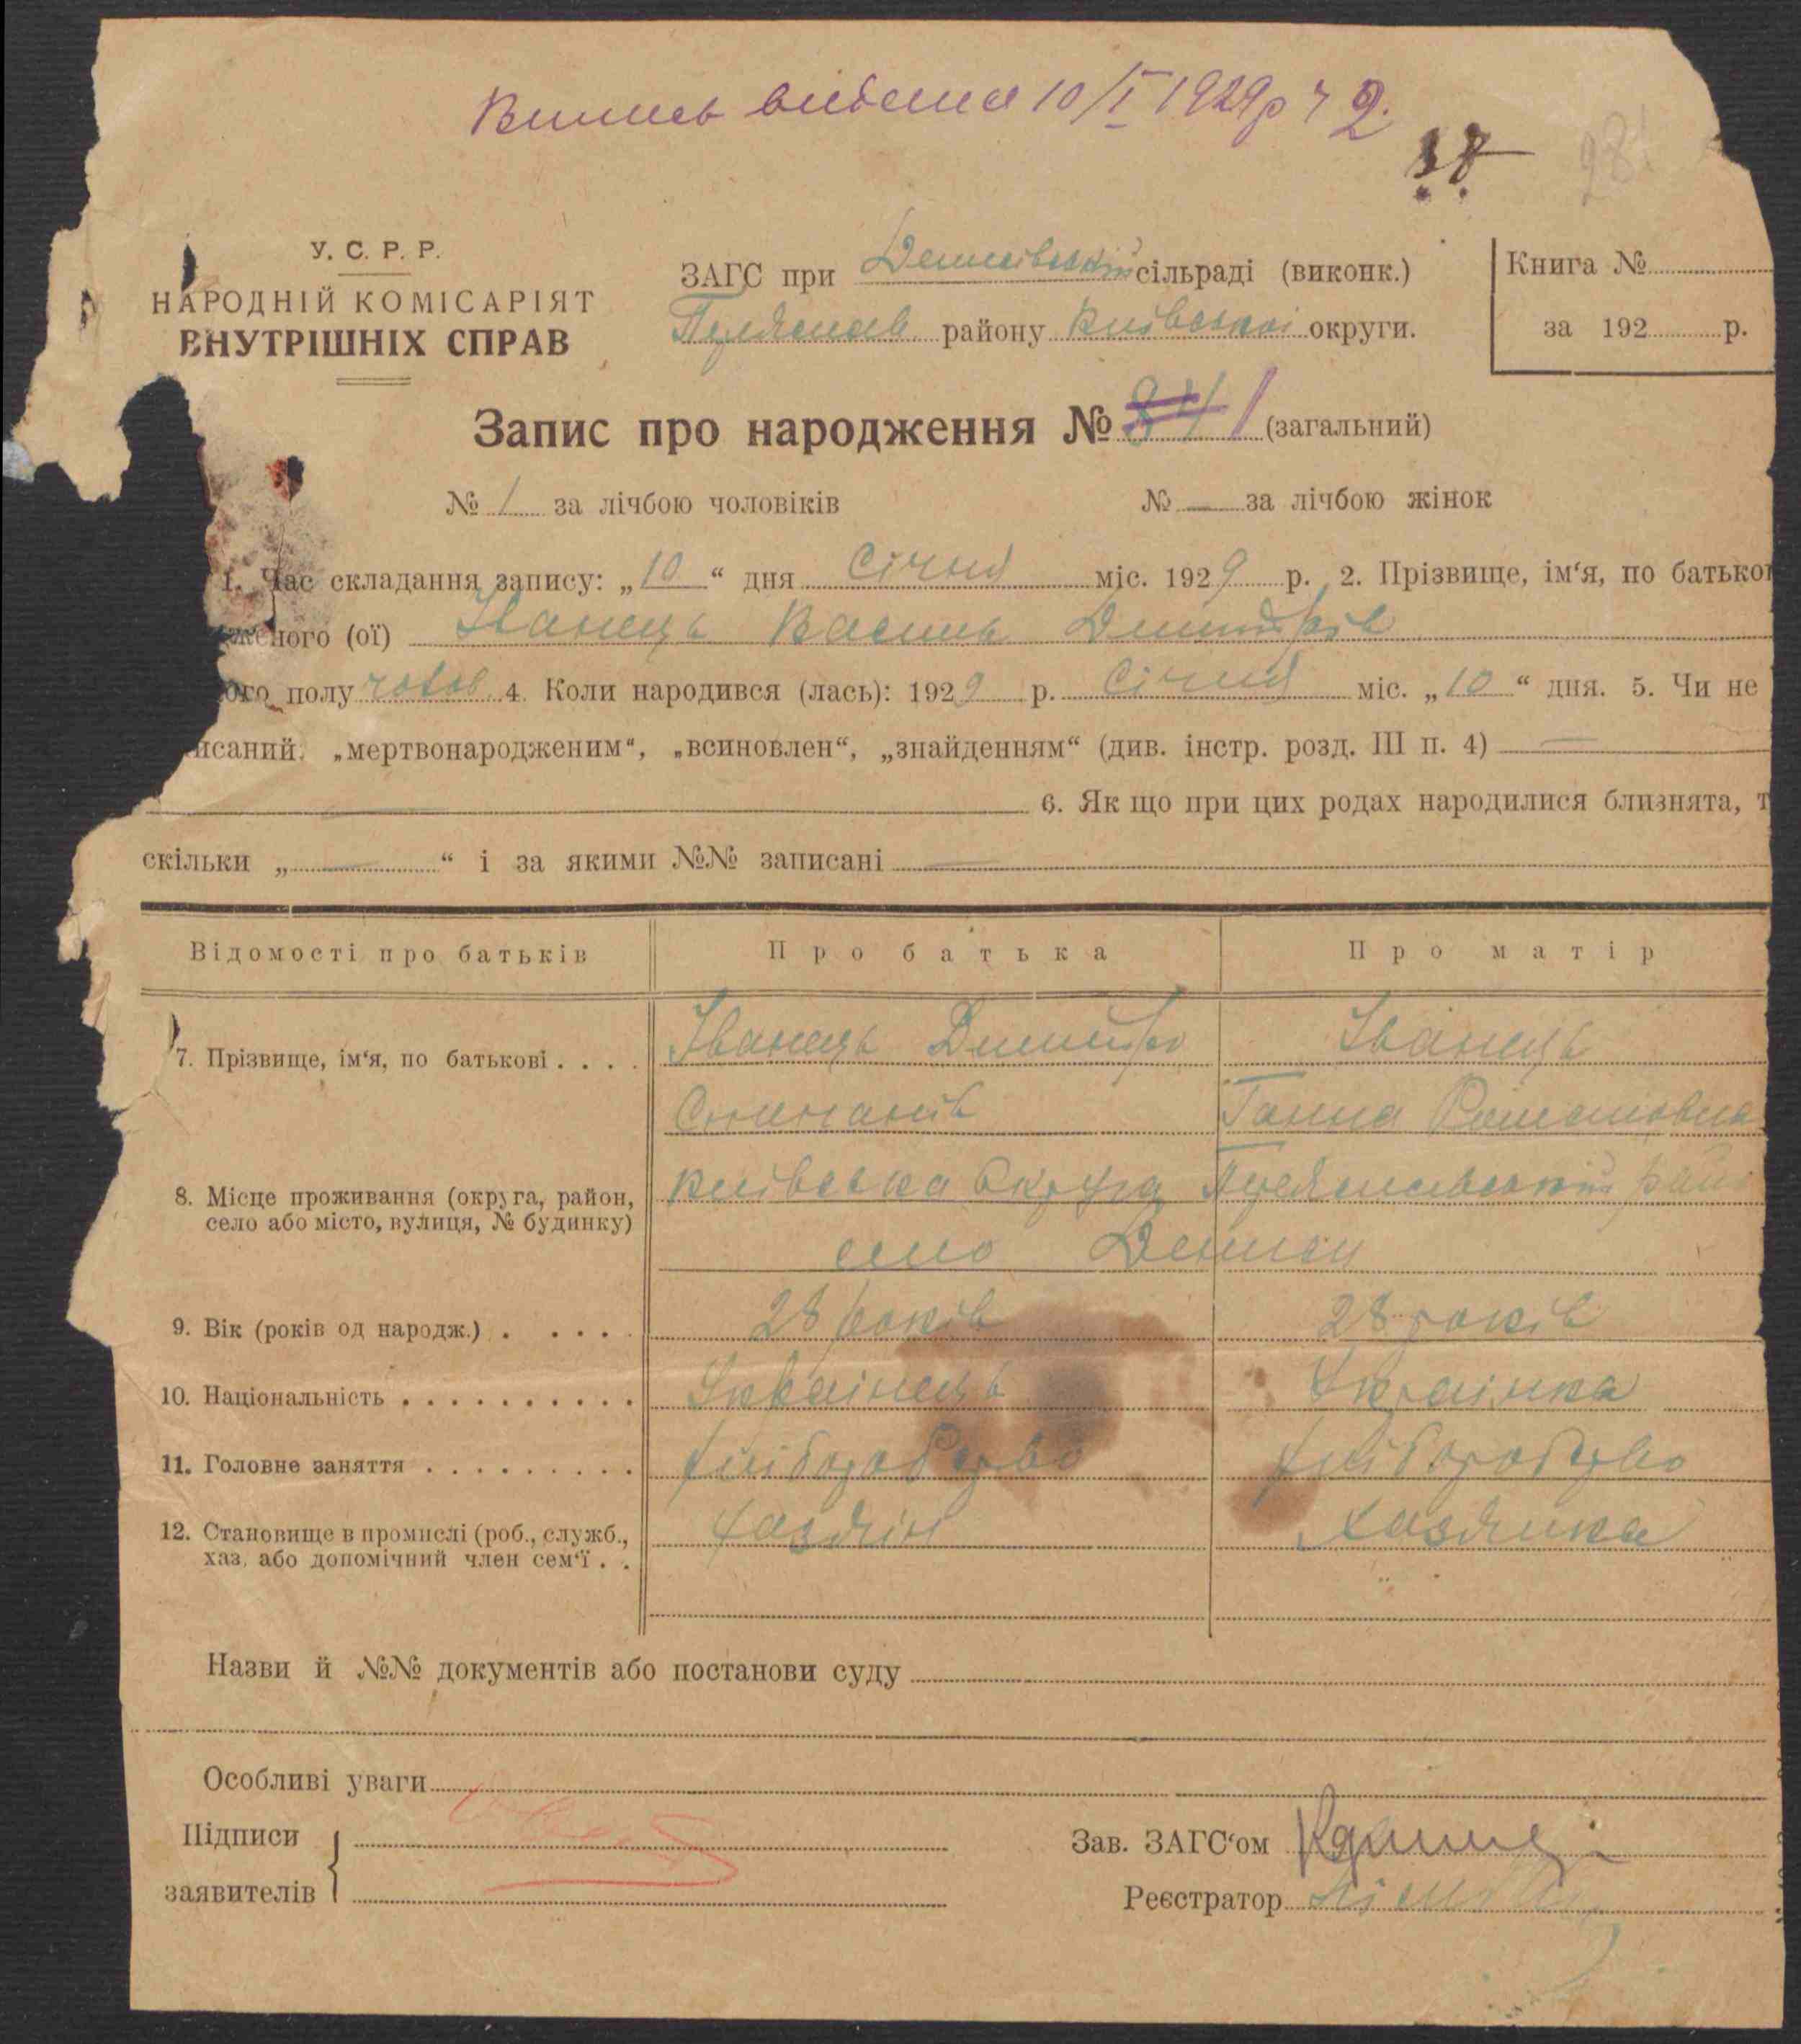 Випись видана 10/I 1929р ч 2.
38
281
У. С. Р. Р.
НАРОДНІЙ КОМІСАРІЯТ
ВНУТРІШНІХ СПРАВ
ЗАГС при Денисівській сільраді (виконк.)
Переяслав району Київської округи.
Книга №
за 192 р.
Запис про народження № 1 (загальний)
№ 1 за лічбою чоловіків № — за лічбою жінок
1. Час складання запису: „10“ дня Січня міс. 1929 р. 2. Прізвище, ім‘я, по батьков
женого (ої) Іванець Василь Дмитрів
ого полу чолов 4. Коли народився (лась): 1929 р. Січня міс. „10“ дня. 5. Чи не
исаний: „мертвонародженим“, „всиновлен“, „знайденням“ (див. інстр. розд. III п. 4) —
6. Як що при цих родах народилися близнята, т
скільки „—“ і за якими №№ записані —
Відомості про батьків Про батька Про матір
7. Прізвище, ім‘я, по батькові . . . . Іванець Дмитро Іванець
Степанів Ганна Романовна
8. Місце проживання (округа, район, село або місто, вулиця, № будинку) Київська Округа Переяславський район
село Дениси
9. Вік (років од народж.) . . . . . 28 років 28 років
10. Національність . . . . . . . . . . Українець Українка
11. Головне заняття . . . . . . . . . хліборобство хліборобство
12. Становище в промислі (роб., служб., хаз. або допомічний член сем‘ї . . хазяїн хазяйка
Назви й №№ документів або постанови суду
Особливі уваги
Підписи
заявителів
Зав. ЗАГС‘ом
Реєстратор